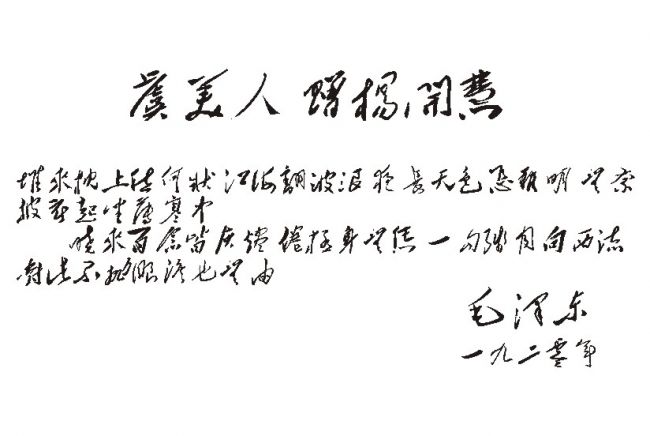 虞美人 贈楊開慧
堆来枕上愁何状 江海翻波浪 夜长天色怎难明 无奈
披衣起坐薄寒中
晓来百念皆灰烬 倦极身无凭 一勾残月向西流
对此不抛眼泪也无由
毛泽东
一九二零年